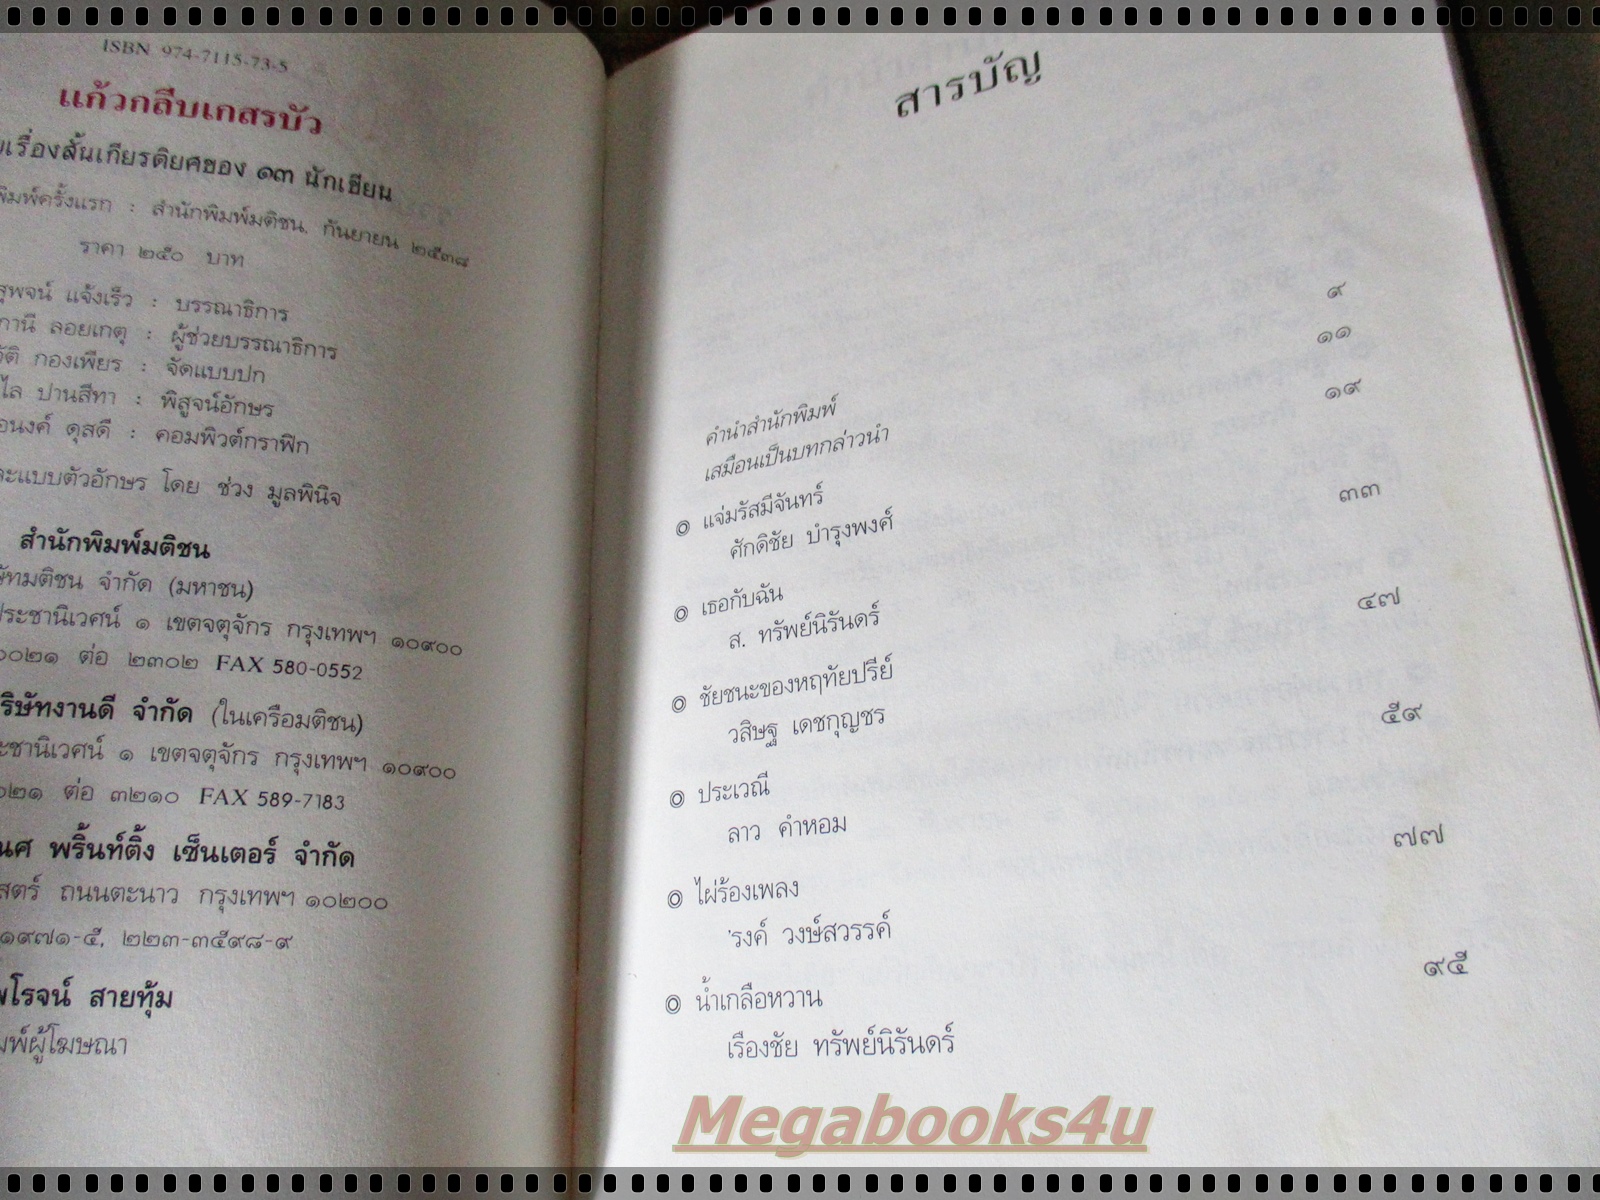 ISBN 974-7115-73-5
แก้วกลีบเกสรบัว
เรื่องสั้นเกียรติยศของ ๑๓ นักเขียน
พิมพ์ครั้งแรก : สำนักพิมพ์มติชน, กันยายน ๒๕๓๘
ราคา ๒๕๐ บาท
สุพจน์ แจ้งเร็ว : บรรณาธิการ
ลอยเกตุ : ผู้ช่วยบรรณาธิการ
กองเพียร : จัดแบบปก
ปานสีทา : พิสูจน์อักษร
ดุสดี : คอมพิวต์กราฟิก
ละแบบตัวอักษร โดย ช่วง มูลพินิจ
สำนักพิมพ์มติชน
มติชน จำกัด (มหาชน)
ประชานิเวศน์ ๑ เขตจตุจักร กรุงเทพฯ ๑๐๙๐๐
๐๐๒๑ ต่อ ๒๓๐๒ FAX 580-0552
ริษัทงานดี จำกัด (ในเครือมติชน)
ะชานิเวศน์ ๑ เขตจตุจักร กรุงเทพฯ ๑๐๙๐๐
๐๒๑ ต่อ ๓๒๑๐ FAX 589-7183
พริ้นท์ติ้ง เซ็นเตอร์ จำกัด
ถนนตะนาว กรุงเทพฯ ๑๐๒๐๐
๑๙๗๑-๕, ๒๒๓-๓๕๙๘-๙
พโรจน์ สายทุ้ม
มพ์ผู้โฆษณา
สารบัญ
คำนำสำนักพิมพ์ ๙
เสมือนเป็นบทกล่าวนำ ๑๑
๏ แจ่มรัสมีจันทร์ ๑๙
ศักดิชัย บำรุงพงศ์
๏ เธอกับฉัน ๓๓
ส. ทรัพย์นิรันดร์
๏ ชัยชนะของหฤทัยปรีย์ ๔๗
วสิษฐ เดชกุญชร
๏ ประเวณี ๕๙
ลาว คำหอม
๏ ไผ่ร้องเพลง ๗๗
'รงค์ วงษ์สวรรค์
๏ น้ำเกลือหวาน ๙๕
เรืองชัย ทรัพย์นิรันดร์
Megabooks4u